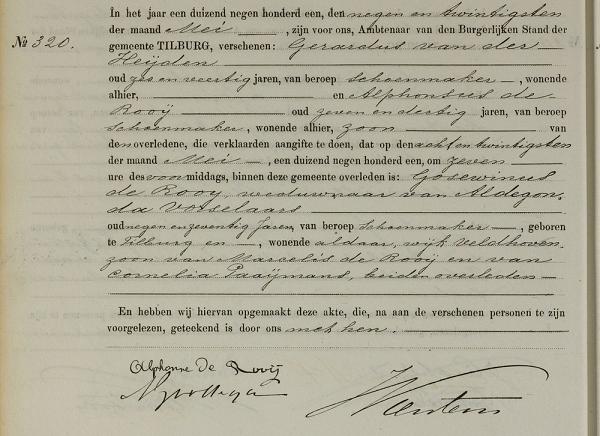 In het jaar een duizend negen honderd een, den negen en twintigsten
der maand Mei, zijn voor ons, Ambtenaar van den Burgerlijken Stand der
№ 320. gemeente TILBURG, verschenen: Gerardus van der
Heijden
oud zes en veertig jaren, van beroep schoenmaker —, wonende
alhier, en Alphonsus de
Rooij oud zeven en dertig jaren, van beroep
schoenmaker, wonende alhier, zoon van
den overledene, die verklaarden aangifte te doen, dat op den acht en twintigsten
der maand Mei —, een duizend negen honderd een, om zeven
ure des voormiddags, binnen deze gemeente overleden is: Gosewinus
de Rooij, weduwnaar van Aldegon-
da Vorselaars
oud negen en zeventig jaren, van beroep schoenmaker —, geboren
te Tilburg en —, wonende aldaar, wijk Veldhoven,
zoon van Marcelis de Rooij en van
Cornelia Paaijmans, beiden overleden —
En hebben wij hiervan opgemaakt deze akte, die, na aan de verschenen personen te zijn
voorgelezen, geteekend is door ons met hen.
Alphonse De Rooij